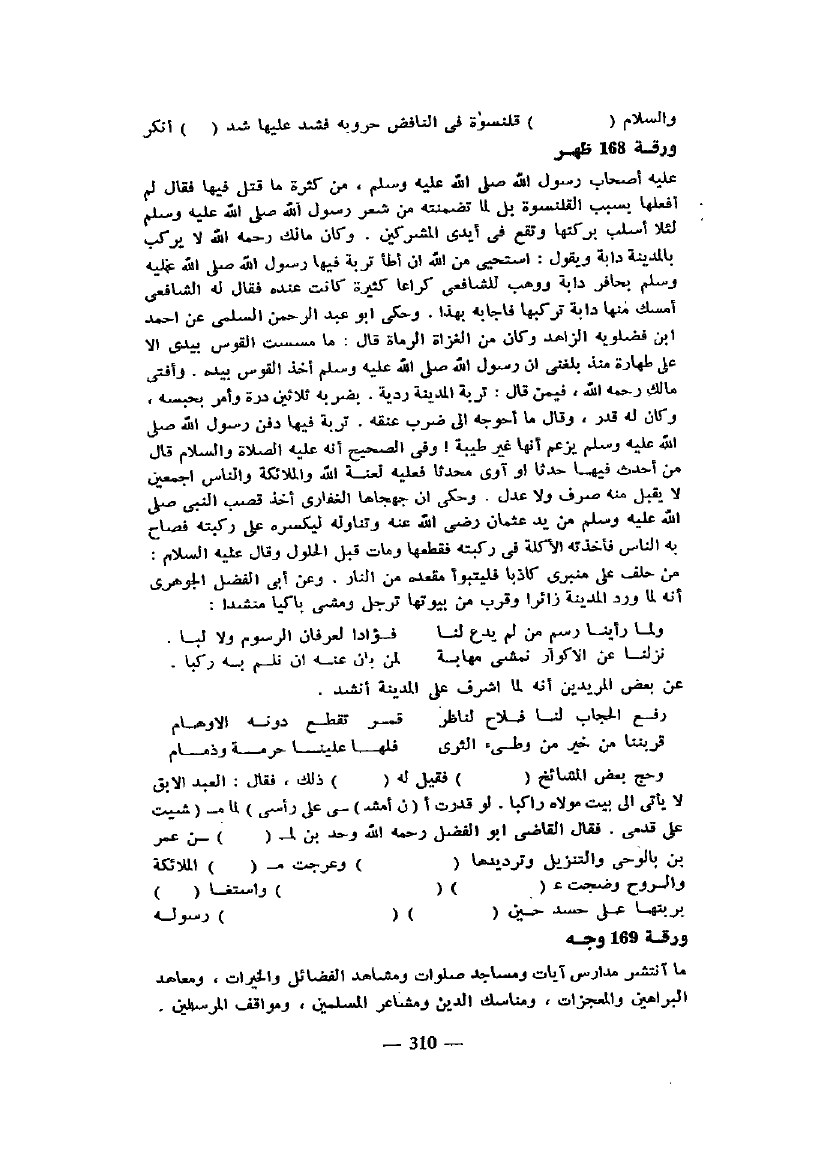 والسلام ( ) قلنسوة فى النافض حروبه فشد عليها شد ( ) أنكر
ورقـة 168 ظهـر
عليه أصحاب رسول الله صلى الله عليه وسلم ، من كثرة ما قتل فيها فقال لم
أفعلها بسبب القلنسوة بل لما تضمنته من شعر رسول الله صلى الله عليه وسلم
لئلا أسلب بركتها وتقع فى أيدى المشركين . وكان مالك رحمه الله لا يركب
بالمدينة دابة ويقول : استحيى من الله ان أطأ تربة فيها رسول الله صلى الله عليه
وسلم بحافر دابة ووهب للشافعى كراعا كثيرة كانت عنده فقال له الشافعى
أمسك منها دابة تركبها فاجابه بهذا . وحكى ابو عبد الرحمن السلمى عن احمد
ابن فضلويه الزاهد وكان من الغزاة الرماة قال : ما مسست القوس بيدى الا
على طهارة منذ بلغنى ان رسول الله صلى الله عليه وسلم أخذ القوس بيده . وأفتى
مالك رحمه الله ، فيمن قال : تربة المدينة ردية . بضربه ثلاثين درة وأمر بحبسه ،
وكان له قدر ، وقال ما أحوجه الى ضرب عنقه . تربة فيها دفن رسول الله صلى
الله عليه وسلم يزعم أنها غير طيبة ! وفى الصحيح أنه عليه الصلاة والسلام قال
من أحدث فيهـا حدثا او آوى محدثا فعليه لعنـة الله والملائكة والناس اجمعين
لا يقبل منه صرف ولا عدل . وحكى ان جهجاها الغفارى أخذ قصب النبى صلى
الله عليه وسلم من يد عثمان رضى الله عنه وتناوله ليكسره على ركبته فصاح
به الناس فأخذته الأكلة فى ركبته فقطعها ومات قبل الحلول وقال عليه السلام :
من حلف على منبرى كاذبا فليتبوأ مقعده من النار . وعن أبى الفضل الجوهرى
أنه لما ورد المدينة زائرا وقرب من بيوتها ترجل ومشى باكيا منشدا :
ولما رأينـا رسم من لم يدع لنـا فـؤادا لعرفان الرسوم ولا لبـا .
نزلنـا عن الاكوار نمشى مهابـة لمن بان عنـه ان نلـم بـه ركبا .
عن بعض المريدين أنه لما اشرف على المدينة أنشد .
رفـع الحجاب لنـا فـلاح لناظر قمـر تقطـع دونـه الاوهـام
قربتنا من خير من وطـىء الثرى فلهـا علينـا حرمـة وذمـام
وحج بعض المشائخ ( ) فقيل له ( ) ذلك ، فقال : العبد الابق
لا يأتى الى بيت مولاه راكبا . لو قدرت أ ( ن أمشـ ) ـى على رأسى ) لما مـ ( شيت
على قدمى . فقال القاضى ابو الفضل رحمه الله وحد بن لمـ ( ) ـن عمر
بن بالوحى والتنزيل وترديدها ( ) وعرجت مـ ( ) الملائكة
والـروح وضجت ء ( ) ( ) واستغـا ( )
بربتهـا علـى حسد حـين ( ) ( ) رسولـه
ورقـة 169 وجـه
ما آنتشر مدارس آيات ومساجد صلوات ومشاهد الفضائل والخيرات ، ومعاهد
البراهين والمعجزات ، ومناسك الدين ومشاعر المسلمين ، ومواقف المرسلين .
— 310 —